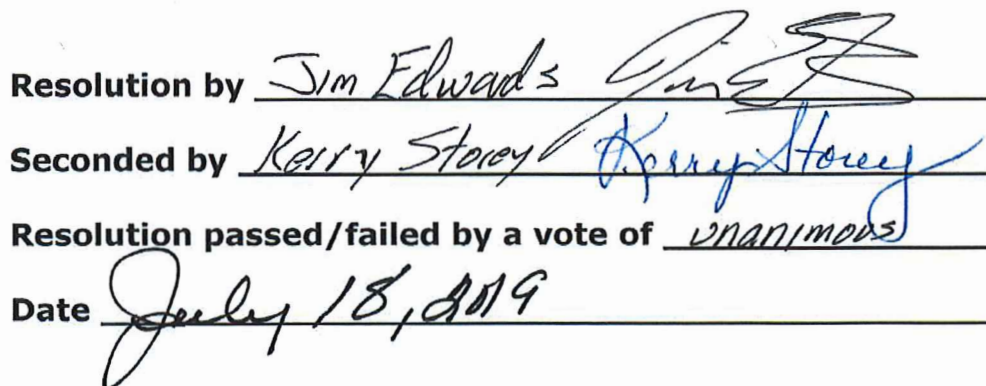 Resolution by Jim Edwards
Seconded by Kerry Storey Kerry Storey
Resolution passed/failed by a vote of unanimous
Date July 18, 2019